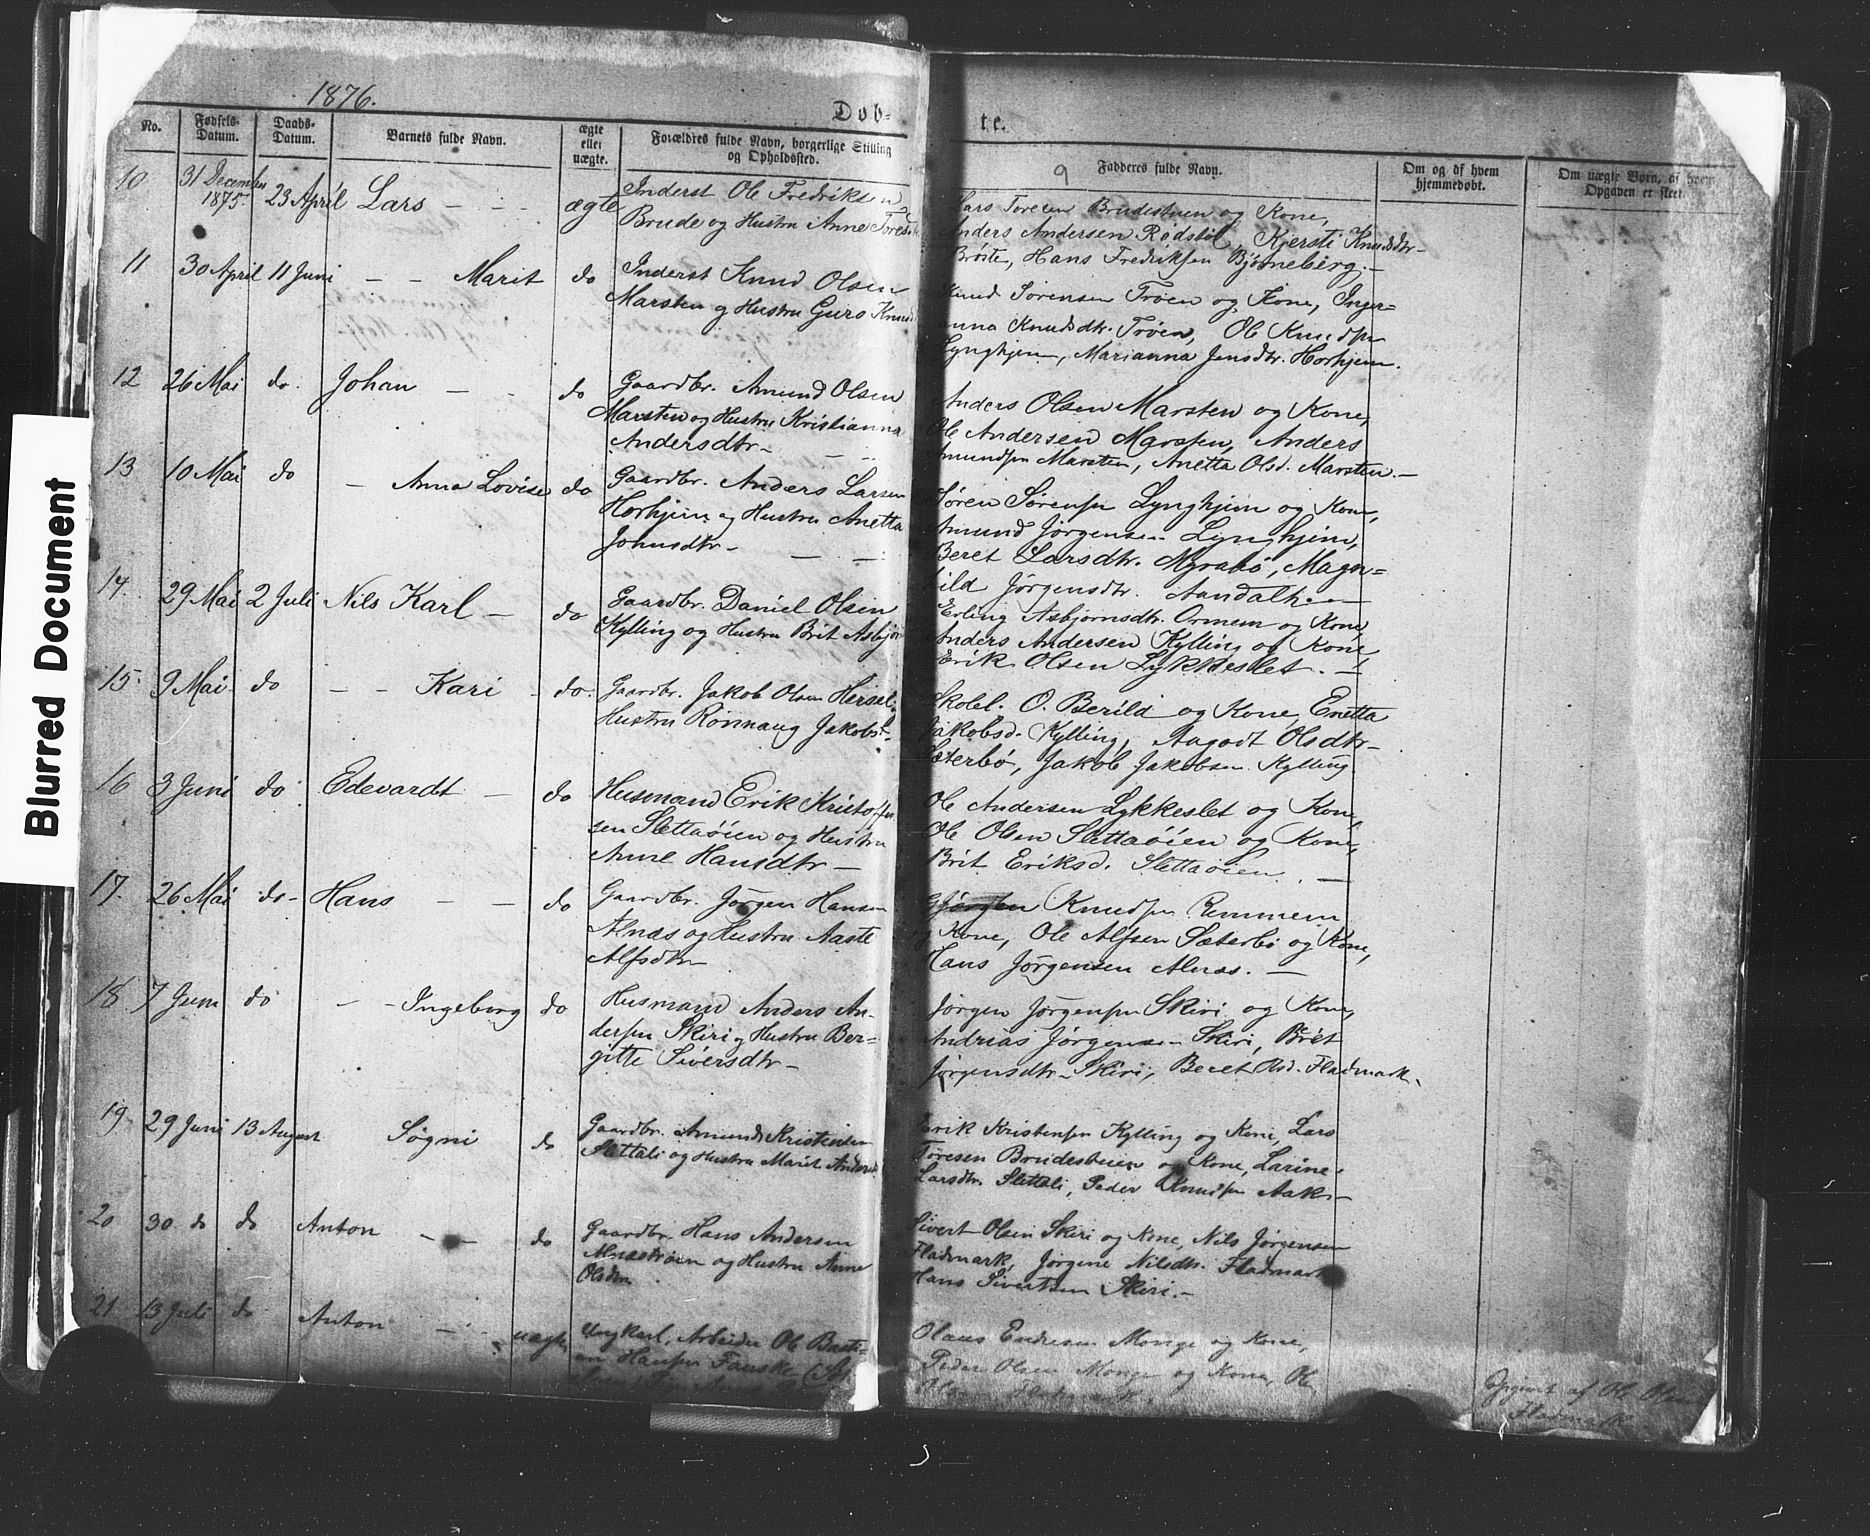 Blurred Document
1876.
Døb-
te.
9
No.
Fødsels-Datum.
Daabs-Datum.
Barnets fulde Navn.
ægte eller uægte.
Forældres fulde Navn, borgerlige Stilling og Opholdssted.
Fadderes fulde Navn.
Om og af hvem hjemmedøbt.
Om uægte Børn, af hvem Opgaven er skeet.
10 31 December 1875. 23 April Lars — — ægte
Inderst Ole Fredriksen
Brude og Hustru Anne Tores
Lars Toresen Brudestuen og Kone,
Anders Andersen Rødstøl, Kjersti Knudsdtr
Brøste, Hans Fredriksen Bjørneberg. —
11 30 April 11 Juni — — Marit do
Inderst Knud Olsen
Marsten og Hustru Guro Knuds
Knud Sørensen Trøen og Kone, Inger-
anna Knudsdtr. Trøen, Ole Knudsen
Lynghjem, Marianna Jensdtr. Horhjem.
12 26 Mai do. Johan — - do
Gaardbr. Amund Olsen
Marsten og Hustru Kristianna
Andersdtr — — —
Anders Olsen Marsten og Kone,
Ole Andersen Marsten, Anders
Amundsen Marsten, Anetta Olsd. Marsten. —
13 10 Mai do — Anna Lovise do
Gaardbr. Anders Larsen
Horhjem og Hustru Anetta
Johnsdtr — — —
Søren Sørensen Lynghjem og Kone,
Amund Jørgensen Lynghjem,
Beret Larsdtr. Myrabø, Magn=
ild Jørgensdtr. Aandalh. —
14. 29 Mai 2 Juli Nils Karl — do
Gaardbr. Daniel Olsen
Kylling og Hustru Brit Asbjør
Erling Asbjørnsdtr. Ormem og Kone,
Anders Andersen Kylling og Kone
Erik Olsen Lykkeslet. —
15. 9 Mai do — — Kari - do.
Gaardbr. Jakob Olsen Hersel.
Hustru Rønnaug Jakobsd.
Skolel. O. Berild og Kone, Enetta
Jakobsd. Kylling, Aagodt Olsdtr
Sæterbø, Jakob Jakobsen Kylling
16 3 Juni do Edevardt — do
Husmand Erik Kristoffer
sen Slettaøien og Hustru
Anne Hansdtr —
Ole Andersen Lykkeslet og Kone,
Ole Olsen Slettaøien og Kone,
Brit Eriksd. Slettaøien. —
17. 26 Mai do - Hans — — do
Gaardbr. Jørgen Hansen
Alnæs og Hustru Aaste
Alfsdtr
Knudsen Remmem
og Kone, Ole Alfsen Sæterbø og Kone,
Hans Jørgensen Alnæs. —
18. 7 Juni do — — Ingeborg do
Husmand Anders An-
dersen Skiri og Hustru Ber=
gitte Siversdtr —
Jørgen Jørgensen Skiri og Kone,
Andrias Jørgensen Skiri, Brit
Jørgensdtr Skiri, Beret Olsd. Fladmark.
19 29 Juni 13 August Søgni do
Gaardbr. Amund Kristensen
Slettali og Hustru Marit Andersd
Erik Kristensen Kylling og Kone, Lars
Toresen Brudestuen og Kone, Larine
Larsdtr. Slettali, Peder Knudsen Aak —
20 30. do do Anton — — do
Gaardbr. Hans Andersen
Alnæstrøen og Hustru Anne
Olsdtr
Sivert Olsen Skiri og Kone, Nils Jørgensen
Fladmark, Jørgine Nilsdtr. Fladmark
Hans Sivertsen Skiri. —
21 13 Juli do Anton — - uægte
Ungkarl, Arbeider Ole Basti-
an Hansen Fauske
Olaus Endresen Monge og Kone,
Peder Olsen Monge og Kone, Ole
Opgivet af Ole Olsen
Fladmark